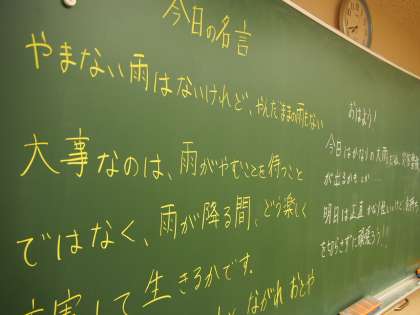 今日の名言
やまない雨はないけれど、やんだままの雨もない
大事なのは、雨がやむことを待つこと
ではなく、雨が降る間、どう楽しく
充実して生きるかです。
ながれ おとや
おはよう!
今日はかなりの大雨
が出るかも
明日は正直 かなり
を切らさずに頑張ろう!!